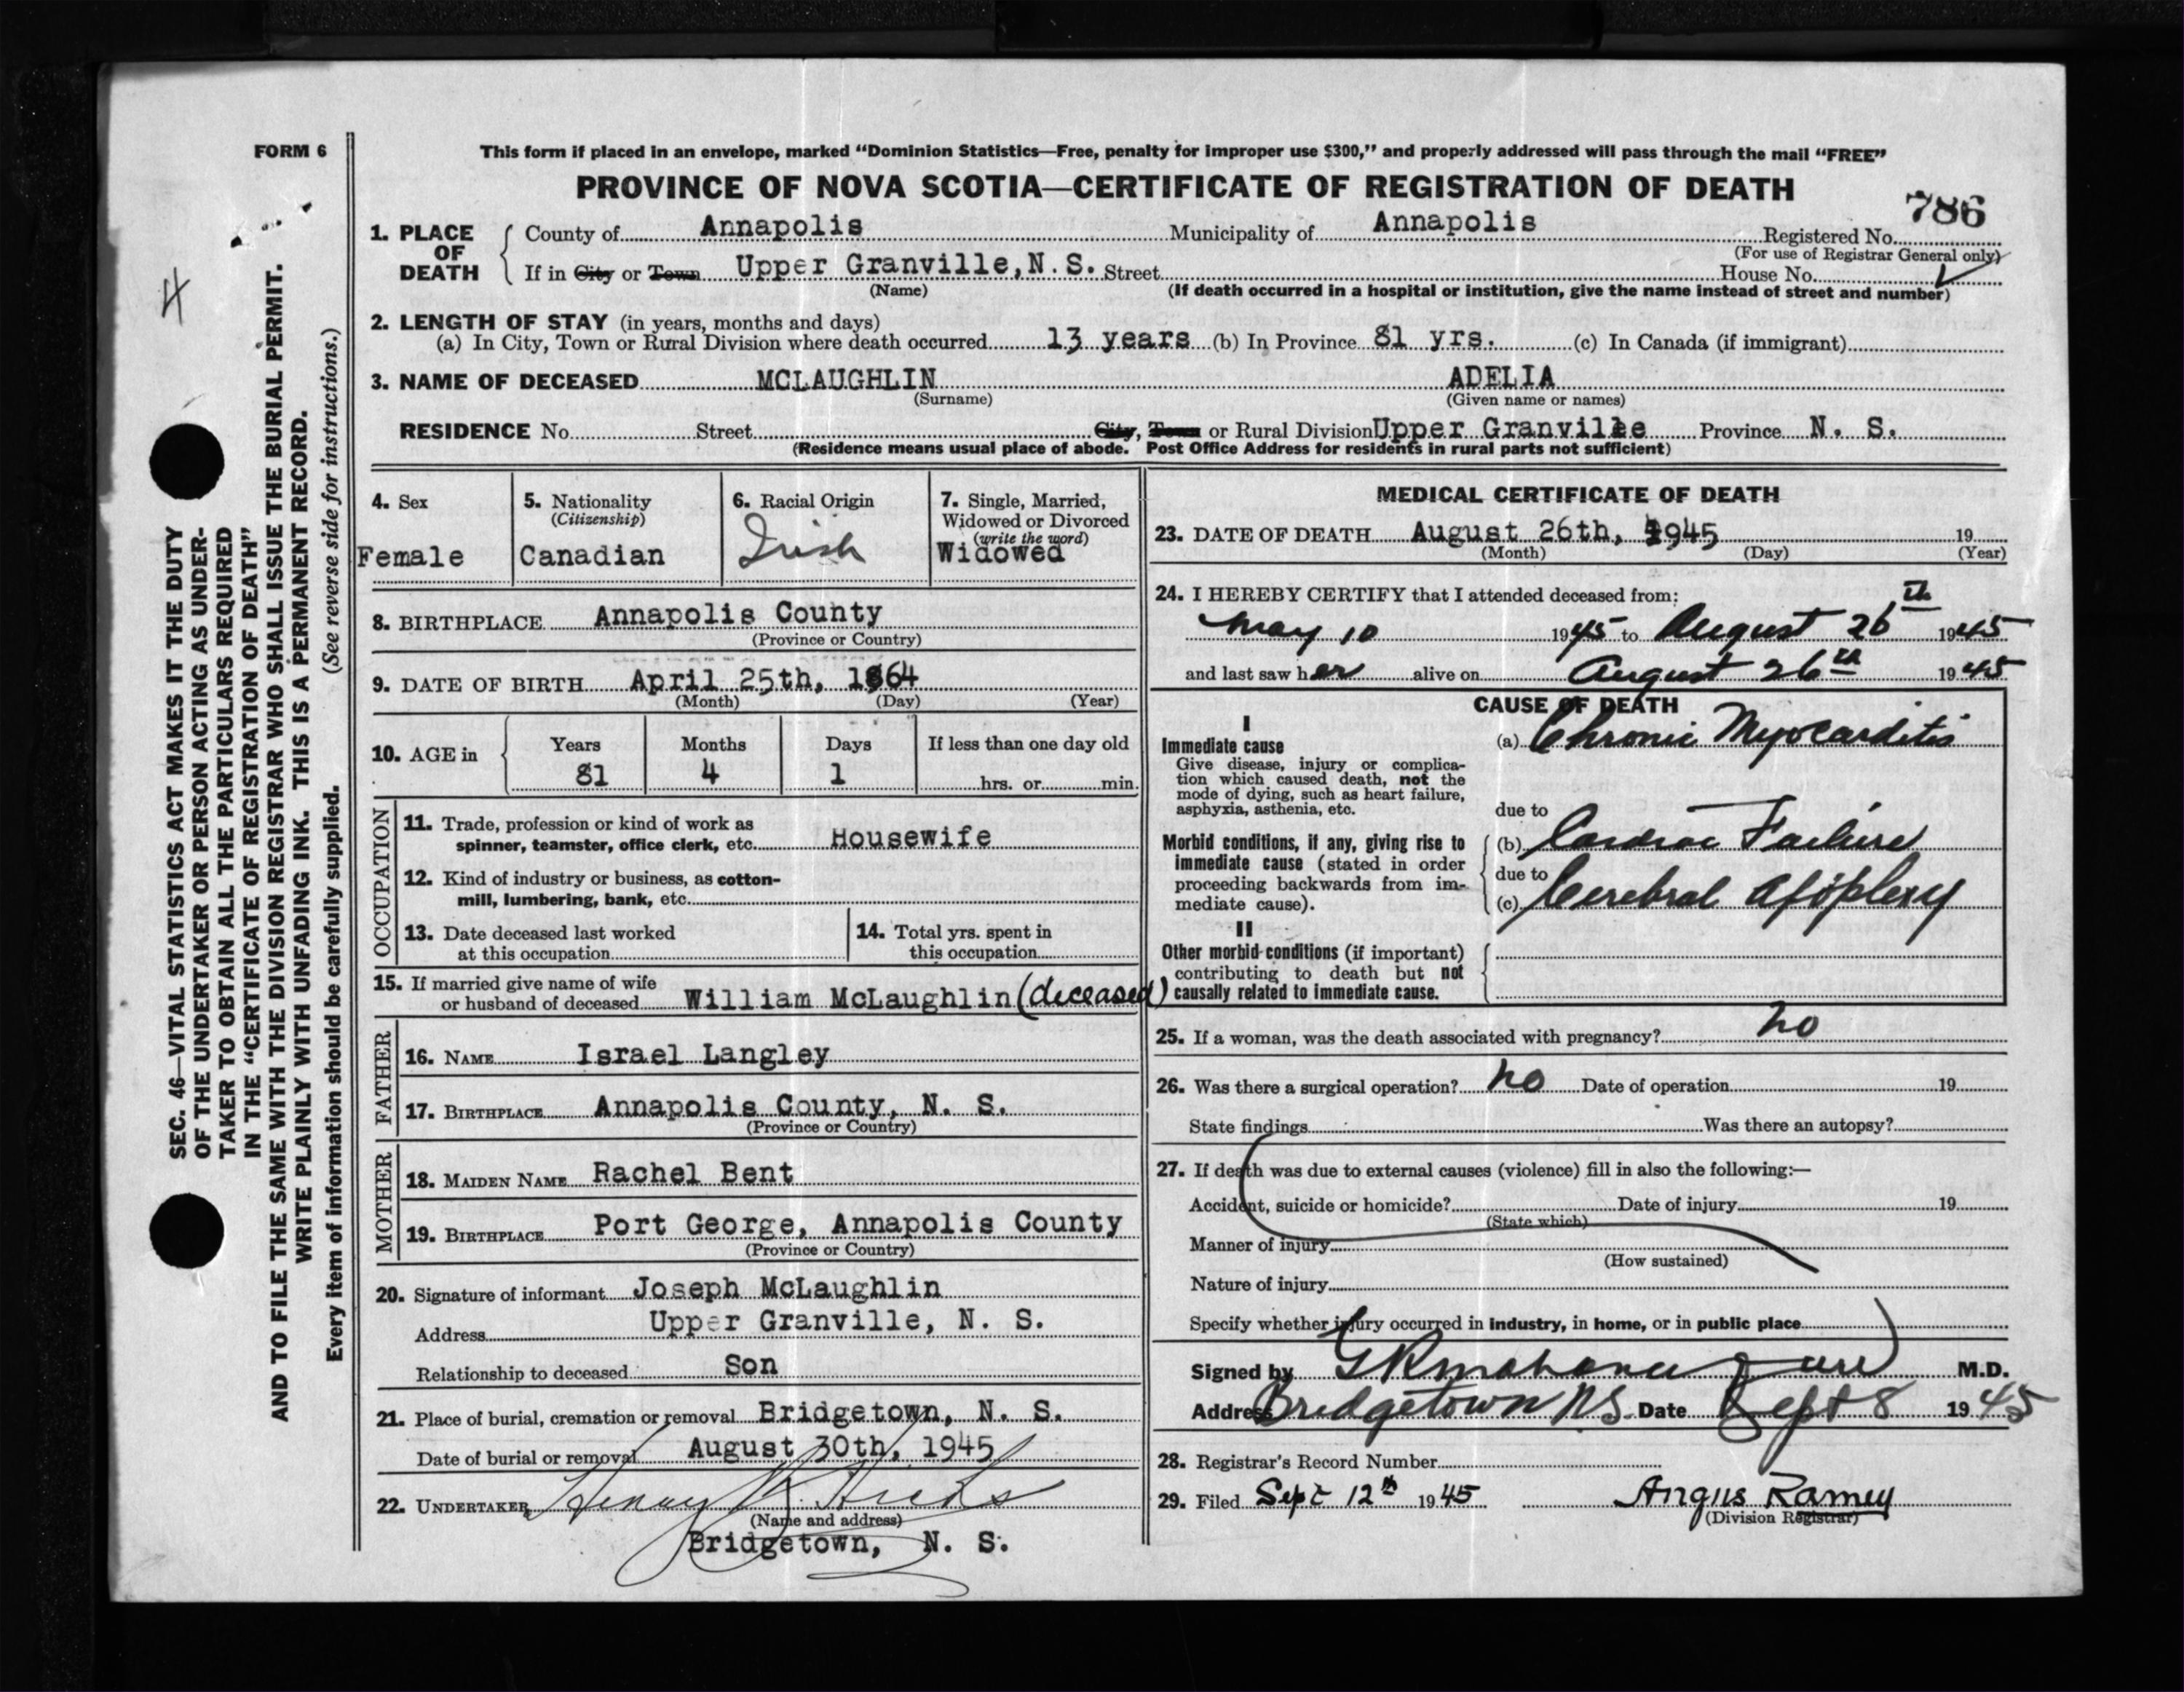 FORM 6
This form if placed in an envelope, marked “Dominion Statistics—Free, penalty for improper use $300,” and properly addressed will pass through the mail “FREE”
PROVINCE OF NOVA SCOTIA—CERTIFICATE OF REGISTRATION OF DEATH
786
1. PLACE OF DEATH County of Annapolis Municipality of Annapolis Registered No.
(For use of Registrar General only)
If in City or Town Upper Granville, N. S. Street House No.
(Name) (If death occurred in a hospital or institution, give the name instead of street and number)
2. LENGTH OF STAY (in years, months and days)
(a) In City, Town or Rural Division where death occurred 13 years (b) In Province 81 yrs. (c) In Canada (if immigrant)
3. NAME OF DECEASED MCLAUGHLIN ADELIA
(Surname) (Given name or names)
RESIDENCE No. Street City, Town or Rural Division Upper Granville Province N. S.
(Residence means usual place of abode. Post Office Address for residents in rural parts not sufficient)
4. Sex
Female
5. Nationality
(Citizenship)
Canadian
6. Racial Origin
Irish
7. Single, Married,
Widowed or Divorced
(write the word)
Widowed
8. BIRTHPLACE Annapolis County
(Province or Country)
9. DATE OF BIRTH April 25th, 1864
(Month) (Day) (Year)
10. AGE in Years Months Days If less than one day old
81 4 1 hrs. or min.
OCCUPATION
11. Trade, profession or kind of work as
spinner, teamster, office clerk, etc. Housewife
12. Kind of industry or business, as cotton-
mill, lumbering, bank, etc.
13. Date deceased last worked
at this occupation
14. Total yrs. spent in
this occupation
15. If married give name of wife
or husband of deceased William McLaughlin (deceased)
FATHER
16. NAME Israel Langley
17. BIRTHPLACE Annapolis County, N. S.
(Province or Country)
MOTHER
18. MAIDEN NAME Rachel Bent
19. BIRTHPLACE Port George, Annapolis County
(Province or Country)
20. Signature of informant Joseph McLaughlin
Address Upper Granville, N. S.
Relationship to deceased Son
21. Place of burial, cremation or removal Bridgetown, N. S.
Date of burial or removal August 30th, 1945
22. UNDERTAKER Henry Hicks
(Name and address)
Bridgetown, N. S.
MEDICAL CERTIFICATE OF DEATH
23. DATE OF DEATH August 26th, 1945 19
(Month) (Day) (Year)
24. I HEREBY CERTIFY that I attended deceased from:
May 10 1945 to August 26th 1945
and last saw her alive on August 26th 1945
CAUSE OF DEATH
I
Immediate cause
Give disease, injury or complica-
tion which caused death, not the
mode of dying, such as heart failure,
asphyxia, asthenia, etc.
(a) Chronic Myocarditis
due to
Morbid conditions, if any, giving rise to
immediate cause (stated in order
proceeding backwards from im-
mediate cause).
(b) Cardiac Failure
due to
(c) Cerebral Apoplexy
II
Other morbid conditions (if important)
contributing to death but not
causally related to immediate cause.
25. If a woman, was the death associated with pregnancy? no
26. Was there a surgical operation? no Date of operation 19
State findings Was there an autopsy?
27. If death was due to external causes (violence) fill in also the following:—
Accident, suicide or homicide? Date of injury 19
(State which)
Manner of injury
(How sustained)
Nature of injury
Specify whether injury occurred in industry, in home, or in public place
Signed by M.D.
Address Bridgetown NS Date Sept 8 1945
28. Registrar's Record Number
29. Filed Sept 12th 1945 Angus Ramey
(Division Registrar)
4
SEC. 46—VITAL STATISTICS ACT MAKES IT THE DUTY
OF THE UNDERTAKER OR PERSON ACTING AS UNDER-
TAKER TO OBTAIN ALL THE PARTICULARS REQUIRED
IN THE “CERTIFICATE OF REGISTRATION OF DEATH”
AND TO FILE THE SAME WITH THE DIVISION REGISTRAR WHO SHALL ISSUE THE BURIAL PERMIT.
WRITE PLAINLY WITH UNFADING INK. THIS IS A PERMANENT RECORD.
Every item of information should be carefully supplied. (See reverse side for instructions.)